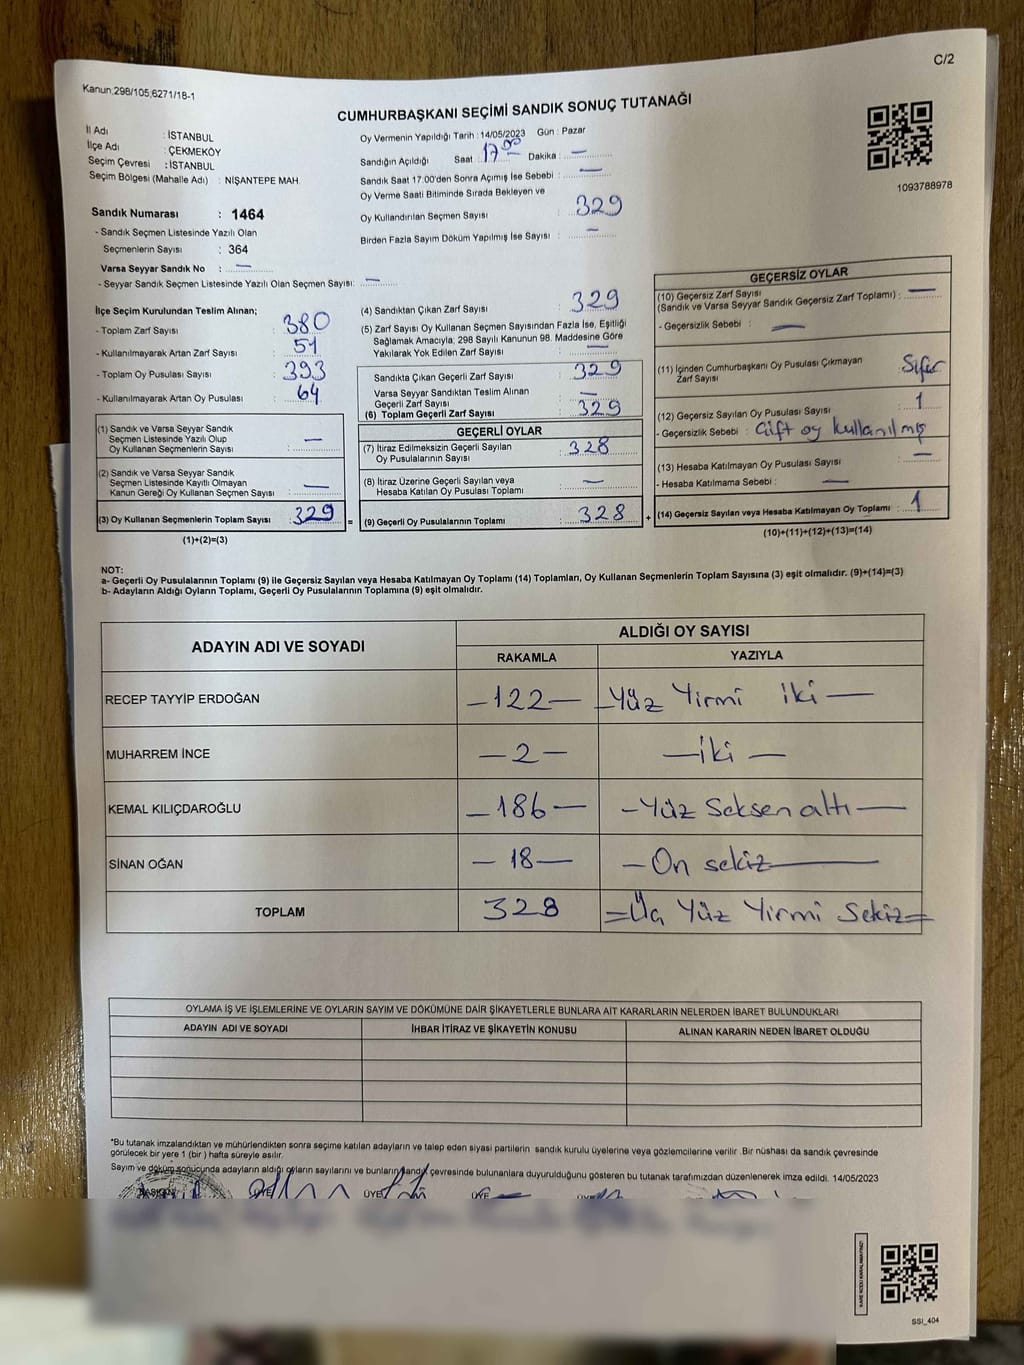 C/2
Kanun;298/105,6271/18-1
CUMHURBAŞKANI SEÇİMİ SANDIK SONUÇ TUTANAĞI
İl Adı : İSTANBUL
İlçe Adı : ÇEKMEKÖY
Seçim Çevresi : İSTANBUL
Seçim Bölgesi (Mahalle Adı) : NİŞANTEPE MAH.
Oy Vermenin Yapıldığı Tarih : 14/05/2023 Gün : Pazar
Sandığın Açıldığı Saat : 17 00 Dakika : —
Sandık Saat 17.00'den Sonra Açımış İse Sebebi : —
Oy Verme Saati Bitiminde Sırada Bekleyen ve
Oy Kullandırılan Seçmen Sayısı : 329
Birden Fazla Sayım Döküm Yapılmış İse Sayısı : —
1093788978
Sandık Numarası : 1464
- Sandık Seçmen Listesinde Yazılı Olan
Seçmenlerin Sayısı : 364
Varsa Seyyar Sandık No : —
- Seyyar Sandık Seçmen Listesinde Yazılı Olan Seçmen Sayısı: —
İlçe Seçim Kurulundan Teslim Alınan;
- Toplam Zarf Sayısı : 380
- Kullanılmayarak Artan Zarf Sayısı : 51
- Toplam Oy Pusulası Sayısı : 393
- Kullanılmayarak Artan Oy Pusulası : 64
(1) Sandık ve Varsa Seyyar Sandık
Seçmen Listesinde Yazılı Olup
Oy Kullanan Seçmenlerin Sayısı : —
(2) Sandık ve Varsa Seyyar Sandık
Seçmen Listesinde Kayıtlı Olmayan
Kanun Gereği Oy Kullanan Seçmen Sayısı : —
(3) Oy Kullanan Seçmenlerin Toplam Sayısı : 329 =
(1)+(2)=(3)
(4) Sandıktan Çıkan Zarf Sayısı : 329
(5) Zarf Sayısı Oy Kullanan Seçmen Sayısından Fazla İse, Eşitliği
Sağlamak Amacıyla; 298 Sayılı Kanunun 98. Maddesine Göre
Yakılarak Yok Edilen Zarf Sayısı : —
Sandıkta Çıkan Geçerli Zarf Sayısı : 329
Varsa Seyyar Sandıktan Teslim Alınan
Geçerli Zarf Sayısı : —
(6) Toplam Geçerli Zarf Sayısı : 329
GEÇERLİ OYLAR
(7) İtiraz Edilmeksizin Geçerli Sayılan
Oy Pusulalarının Sayısı : 328
(8) İtiraz Üzerine Geçerli Sayılan veya
Hesaba Katılan Oy Pusulası Toplamı : —
(9) Geçerli Oy Pusulalarının Toplamı : 328 +
GEÇERSİZ OYLAR
(10) Geçersiz Zarf Sayısı
(Sandık ve Varsa Seyyar Sandık Geçersiz Zarf Toplamı) : —
- Geçersizlik Sebebi : —
(11) İçinden Cumhurbaşkanı Oy Pusulası Çıkmayan
Zarf Sayısı : Sıfır
(12) Geçersiz Sayılan Oy Pusulası Sayısı : 1
- Geçersizlik Sebebi : Çift oy kullanılmış
(13) Hesaba Katılmayan Oy Pusulası Sayısı : —
- Hesaba Katılmama Sebebi : —
(14) Geçersiz Sayılan veya Hesaba Katılmayan Oy Toplamı : 1
(10)+(11)+(12)+(13)=(14)
NOT:
a- Geçerli Oy Pusulalarının Toplamı (9) ile Geçersiz Sayılan veya Hesaba Katılmayan Oy Toplamı (14) Toplamları, Oy Kullanan Seçmenlerin Toplam Sayısına (3) eşit olmalıdır. (9)+(14)=(3)
b- Adayların Aldığı Oyların Toplamı, Geçerli Oy Pusulalarının Toplamına (9) eşit olmalıdır.
ADAYIN ADI VE SOYADI
ALDIĞI OY SAYISI
RAKAMLA YAZIYLA
RECEP TAYYİP ERDOĞAN —122— —Yüz Yirmi iki—
MUHARREM İNCE —2— —iki—
KEMAL KILIÇDAROĞLU —186— —Yüz Seksen altı—
SİNAN OĞAN —18— —On sekiz—
TOPLAM 328 =Üç Yüz Yirmi Sekiz=
OYLAMA İŞ VE İŞLEMLERİNE VE OYLARIN SAYIM VE DÖKÜMÜNE DAİR ŞİKAYETLERLE BUNLARA AİT KARARLARIN NELERDEN İBARET BULUNDUKLARI
ADAYIN ADI VE SOYADI İHBAR İTİRAZ VE ŞİKAYETİN KONUSU ALINAN KARARIN NEDEN İBARET OLDUĞU
*Bu tutanak imzalandıktan ve mühürlendikten sonra seçime katılan adayların ve talep eden siyasi partilerin sandık kurulu üyelerine veya gözlemcilerine verilir .Bir nüshası da sandık çevresinde
görülecek bir yere 1 (bir ) hafta süreyle asılır.
Sayım ve döküm sonucunda adayların aldığı oyların sayılarını ve bunların sandık çevresinde bulunanlara duyurulduğunu gösteren bu tutanak tarafımızdan düzenlenerek imza edildi. 14/05/2023
BAŞKAN ÜYE ÜYE ÜYE ÜYE
KARE KODU KARALAMAYINIZ!
SSI_404